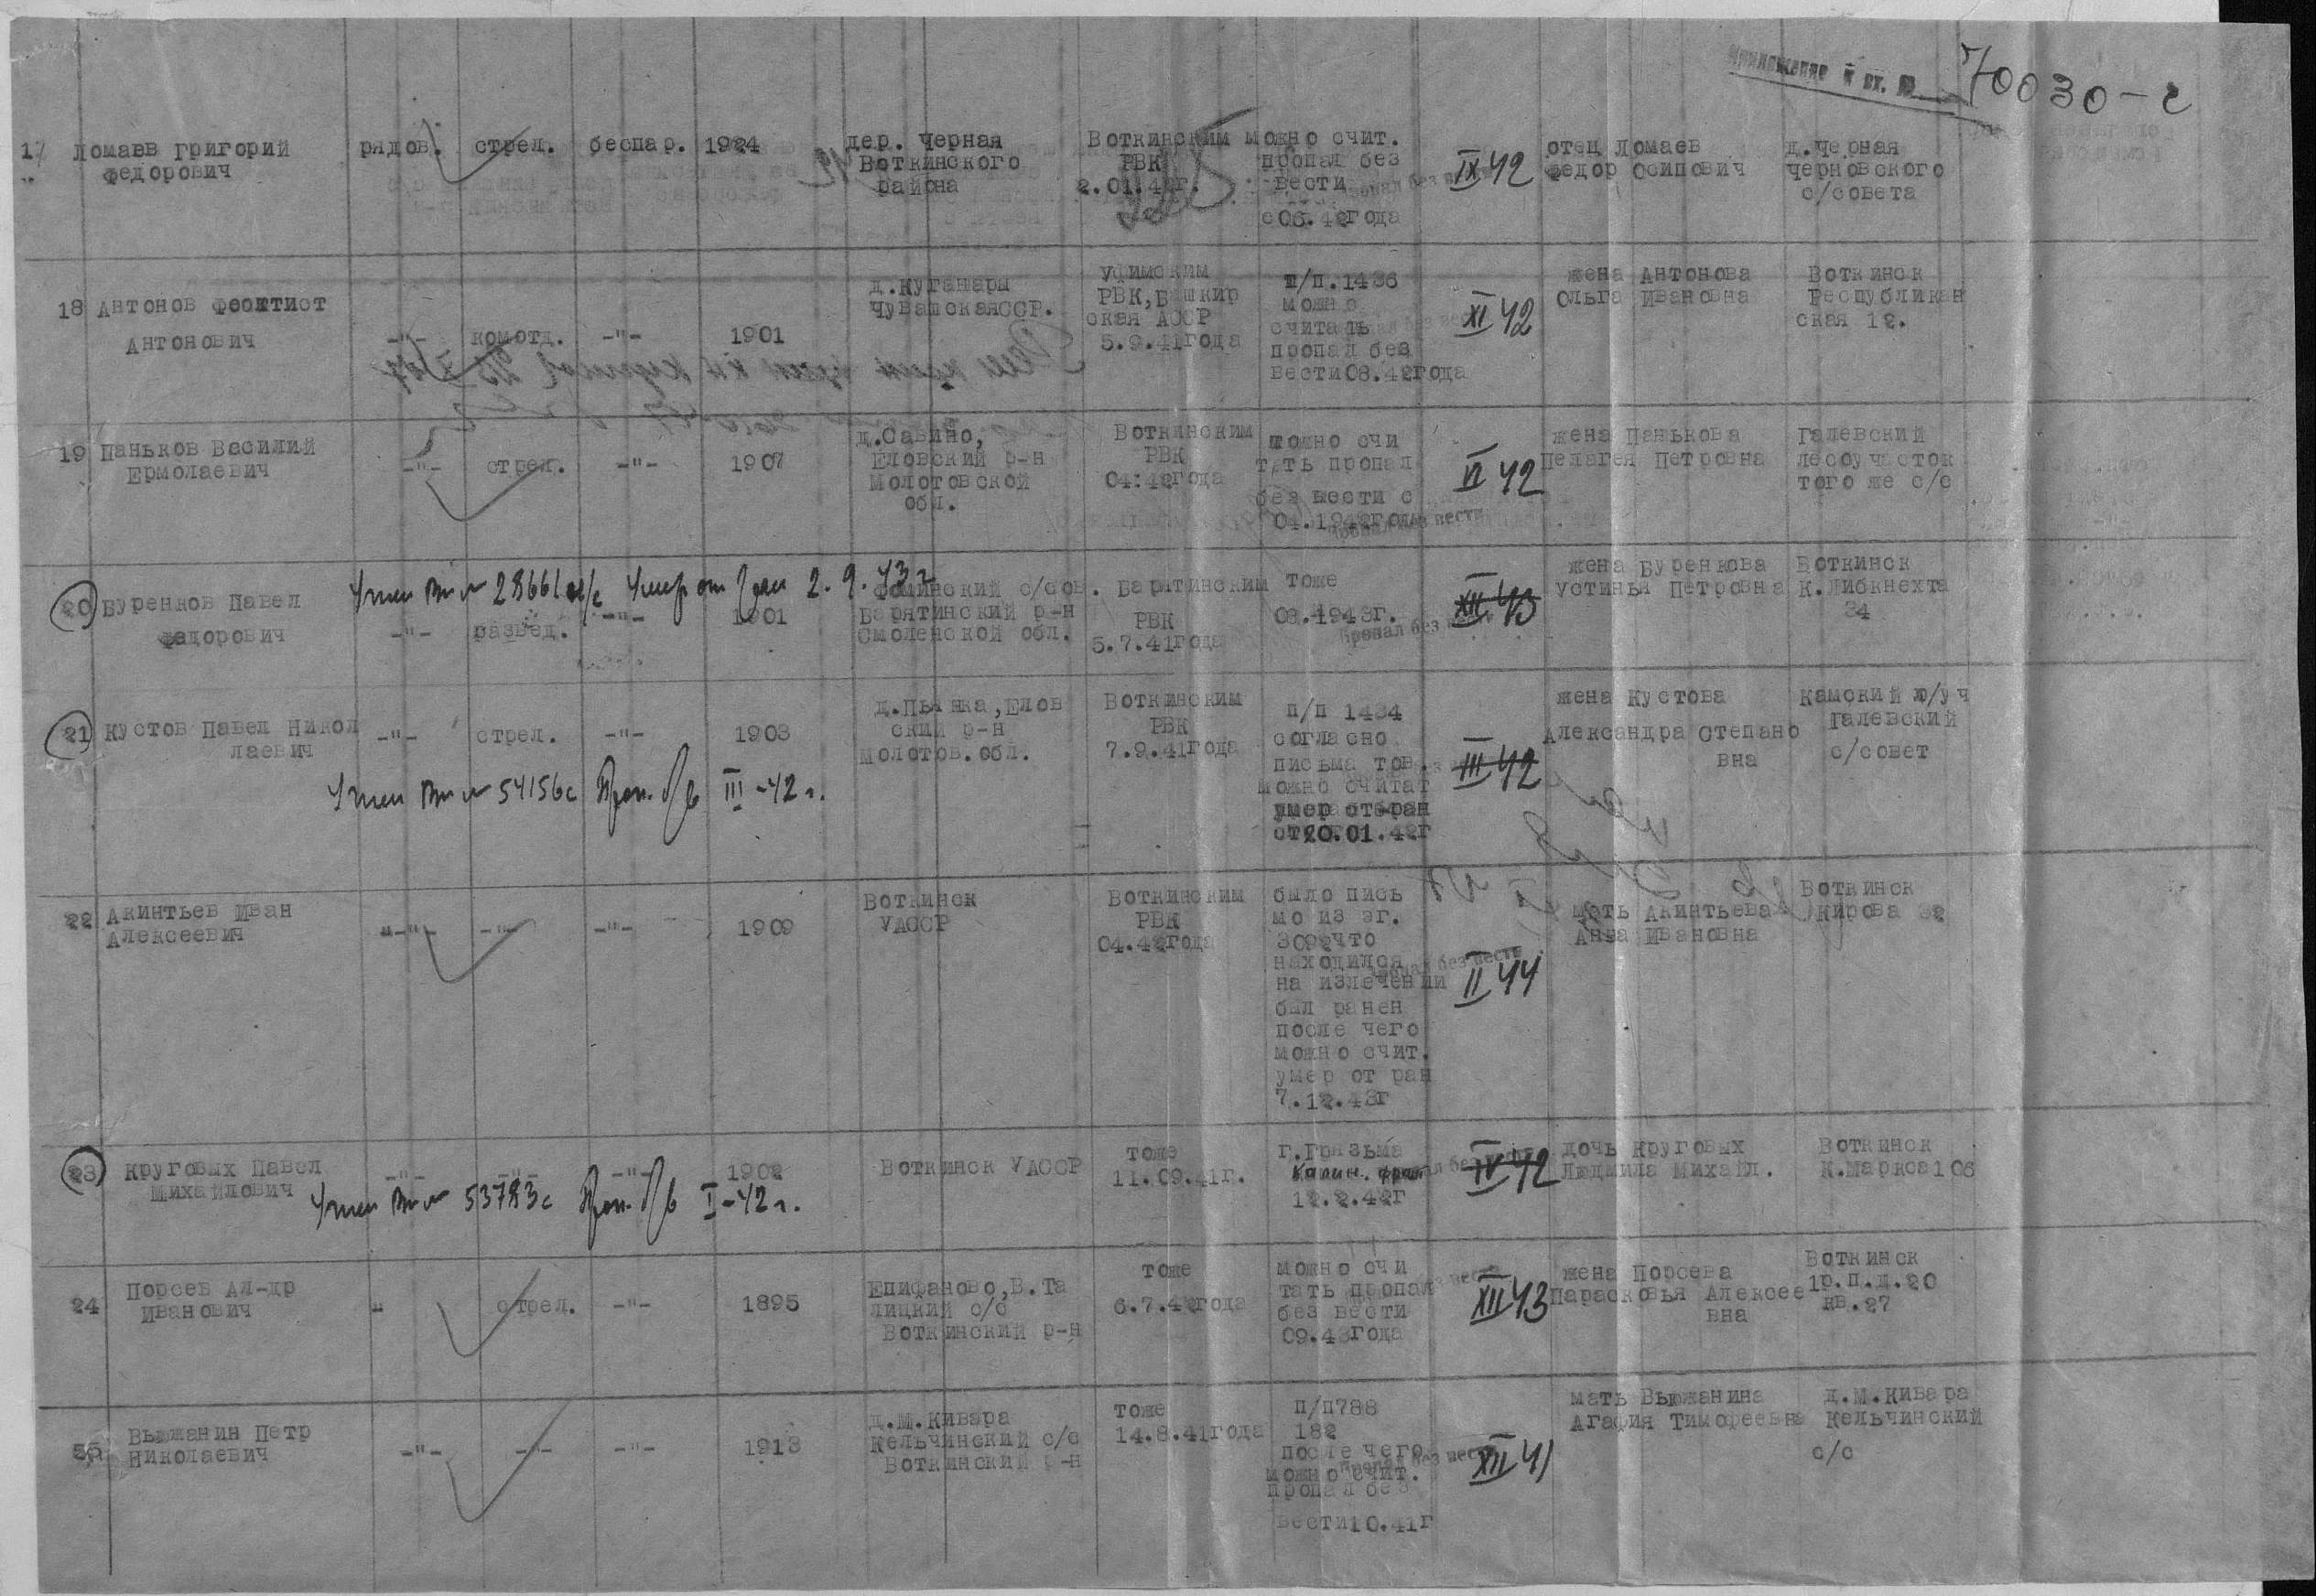 70030-с
17 Ломаев Григорий Федорович рядов. стрел. беспар. 1924 дер. Черная Воткинского района Воткинским РВК 2.01.42г. можно счит. пропал без вести с 06.42года IX 42 отец Ломаев Федор Осипович д.Черная Черновского с/совета
18 Антонов Феоктист Антонович -"- комотд. -"- 1901 д.Куганары ЧувашскаяССР. Уфимским РВК,Башкир ская АССР 5.9.41года п/п.1436 можно считать пропал без вести08.42года XI 42 жена Антонова Ольга Ивановна Воткинск Республикан ская 12.
19 Паньков Василий Ермолаевич -"- стрел. -"- 1907 д.Савино, Еловский р-н Молотовской обл. Воткинским РВК 04.42года можно счи тать пропал без вести с 04.1942года VI 42 жена Панькова Пелагея Петровна Галевский лесоучасток того же с/с
Учтен Вх № 28661 Умер от ран 2.9.43 г
20 Буренков Павел Федорович -"- развед. -"- 1901 с/сов. Барятинский р-н Смоленской обл. Барятинским РВК 5.7.41года тоже 08.1943г. XII 43 жена Буренкова Устинья Петровна Воткинск К.Либкнехта 34
21 Кустов Павел Никол лаевич -"- стрел. -"- 1903 д.Пьянка,Елов ский р-н Молотов.обл. Воткинским РВК 7.9.41года п/п 1434 согласно письма тов. можно считат умер от ран 20.01.42г III 42 жена Кустова Александра Степано вна Камский л/уч Галевский с/совет
Учтен Вх № 54156с Проп. б/в III-42 г.
22 Акинтьев Иван Алексеевич -"- -"- -"- 1909 Воткинск УАССР Воткинским РВК 04.42года было пись мо из эг. 3092что находился на излечении был ранен после чего можно счит. умер от ран 7.12.43г II 44 мать Акинтьева Анна Ивановна Воткинск Кирова 32
23 Круговых Павел Михайлович -"- -"- -"- 1902 Воткинск УАССР тоже 11.09.41г. г.Грязьма Калин. фрон 12.2.42г IV 42 дочь Круговых Людмила Михайл. Воткинск К.Маркса106
Учтен Вх № 53783с Проп. б/в I-42 г.
24 Порсев Ал-др Иванович " стрел. -"- 1895 Епифаново,В.Та лицкий с/с Воткинский р-н тоже 6.7.42года можно счи тать пропал без вести 09.43года XII 43 жена Порсева Парасковья Алексее вна Воткинск 1р.п.д.20 кв.27
25 Вьюжанин Петр Николаевич -"- -"- -"- 1913 д.М.Кивара Кельчинский с/с Воткинский р-н тоже 14.8.41года п/п788 182 после чего можно счит. пропал без вести10.41г XII 41 мать Вьюжанина Агафия Тимофеевна д.М.Кивара Кельчинский с/с